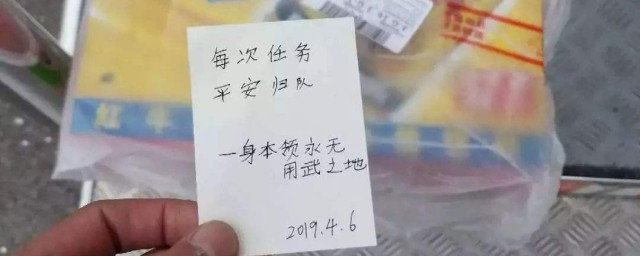 每次任务
平安归队
一身本领永无
用武之地
2019.4.6
红牛